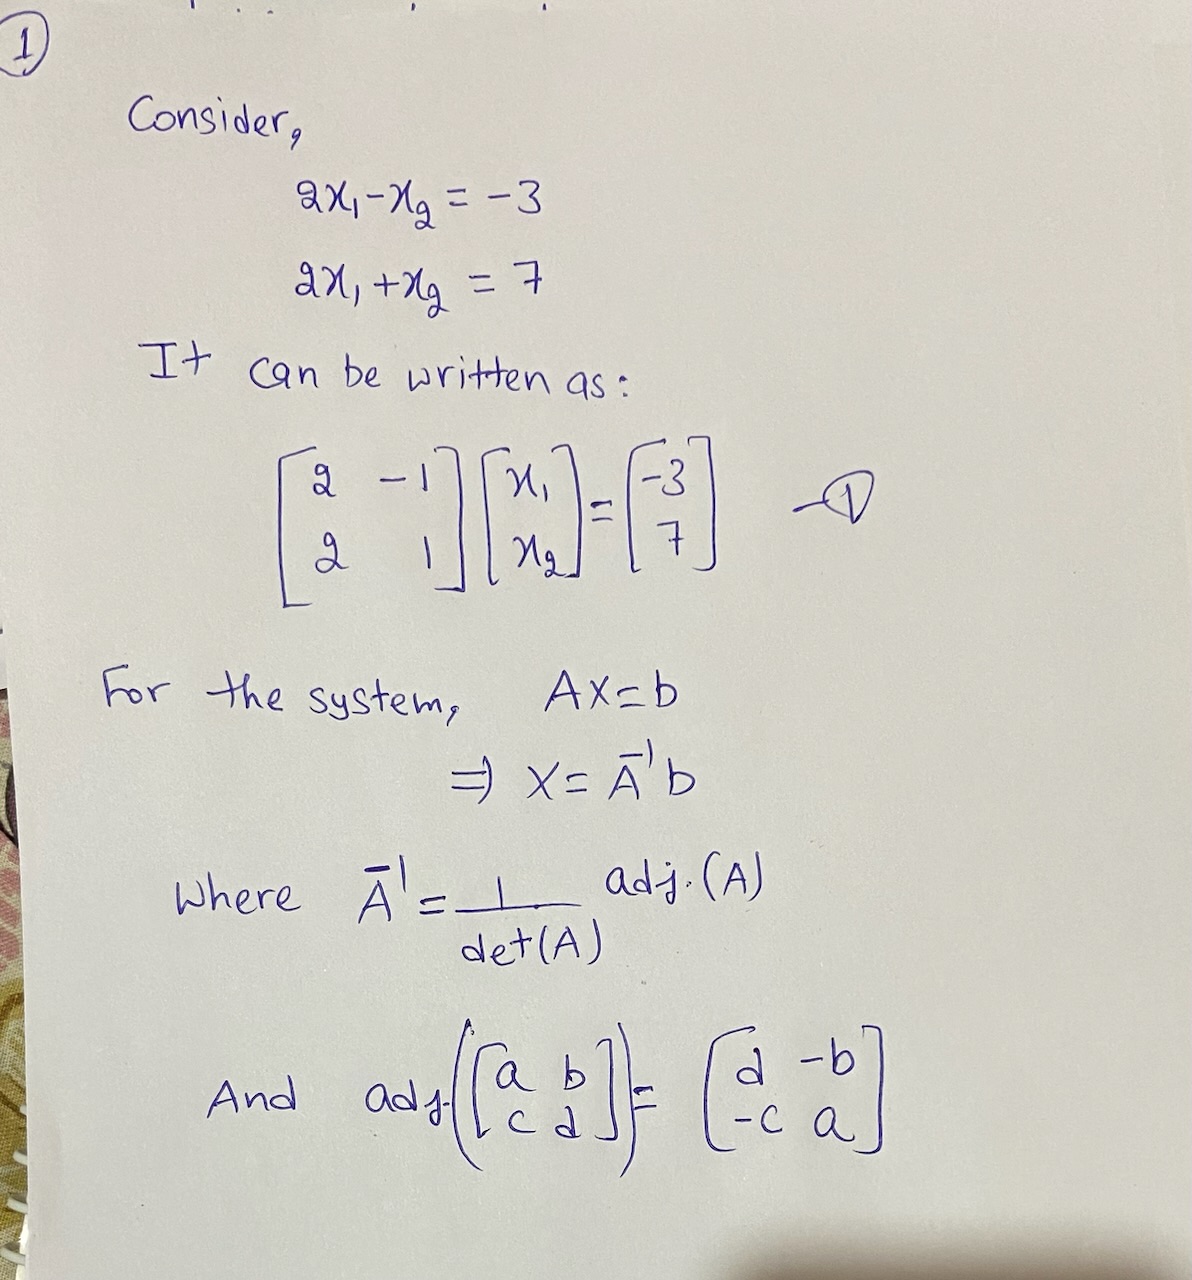 1
Consider,
2x₁-x₂ = -3
2x₁+x₂ = 7
It can be written as:
[2 -1; 2 1][x₁; x₂]=[-3; 7] -①
For the system, AX=b
⇒ X= A⁻¹b
Where A⁻¹= 1/det(A) adj.(A)
And adj.([a b; c d])= [d -b; -c a]